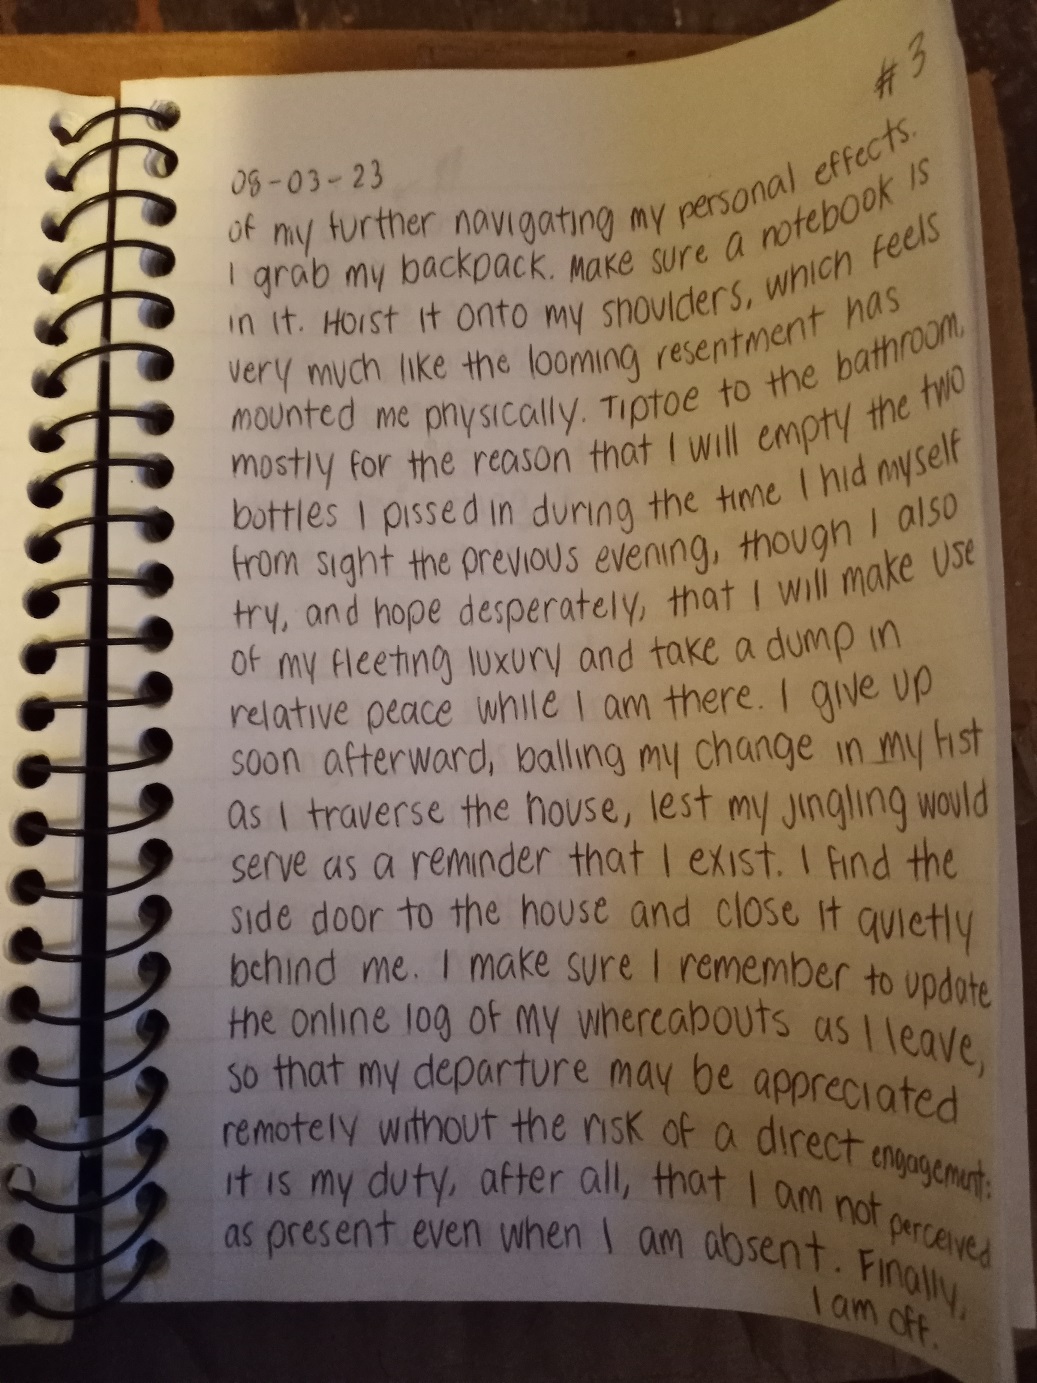 #3
08-03-23
of my further navigating my personal effects.
I grab my backpack. Make sure a notebook is
in it. Hoist it onto my shoulders, which feels
very much like the looming resentment has
mounted me physically. Tiptoe to the bathroom,
mostly for the reason that I will empty the two
bottles I pissed in during the time I hid myself
from sight the previous evening, though I also
try, and hope desperately, that I will make use
of my fleeting luxury and take a dump in
relative peace while I am there. I give up
soon afterward, balling my change in my fist
as I traverse the house, lest my jingling would
serve as a reminder that I exist. I find the
side door to the house and close it quietly
behind me. I make sure I remember to update
the online log of my whereabouts as I leave,
so that my departure may be appreciated
remotely without the risk of a direct engagement:
it is my duty, after all, that I am not perceived
as present even when I am absent. Finally,
I am off.